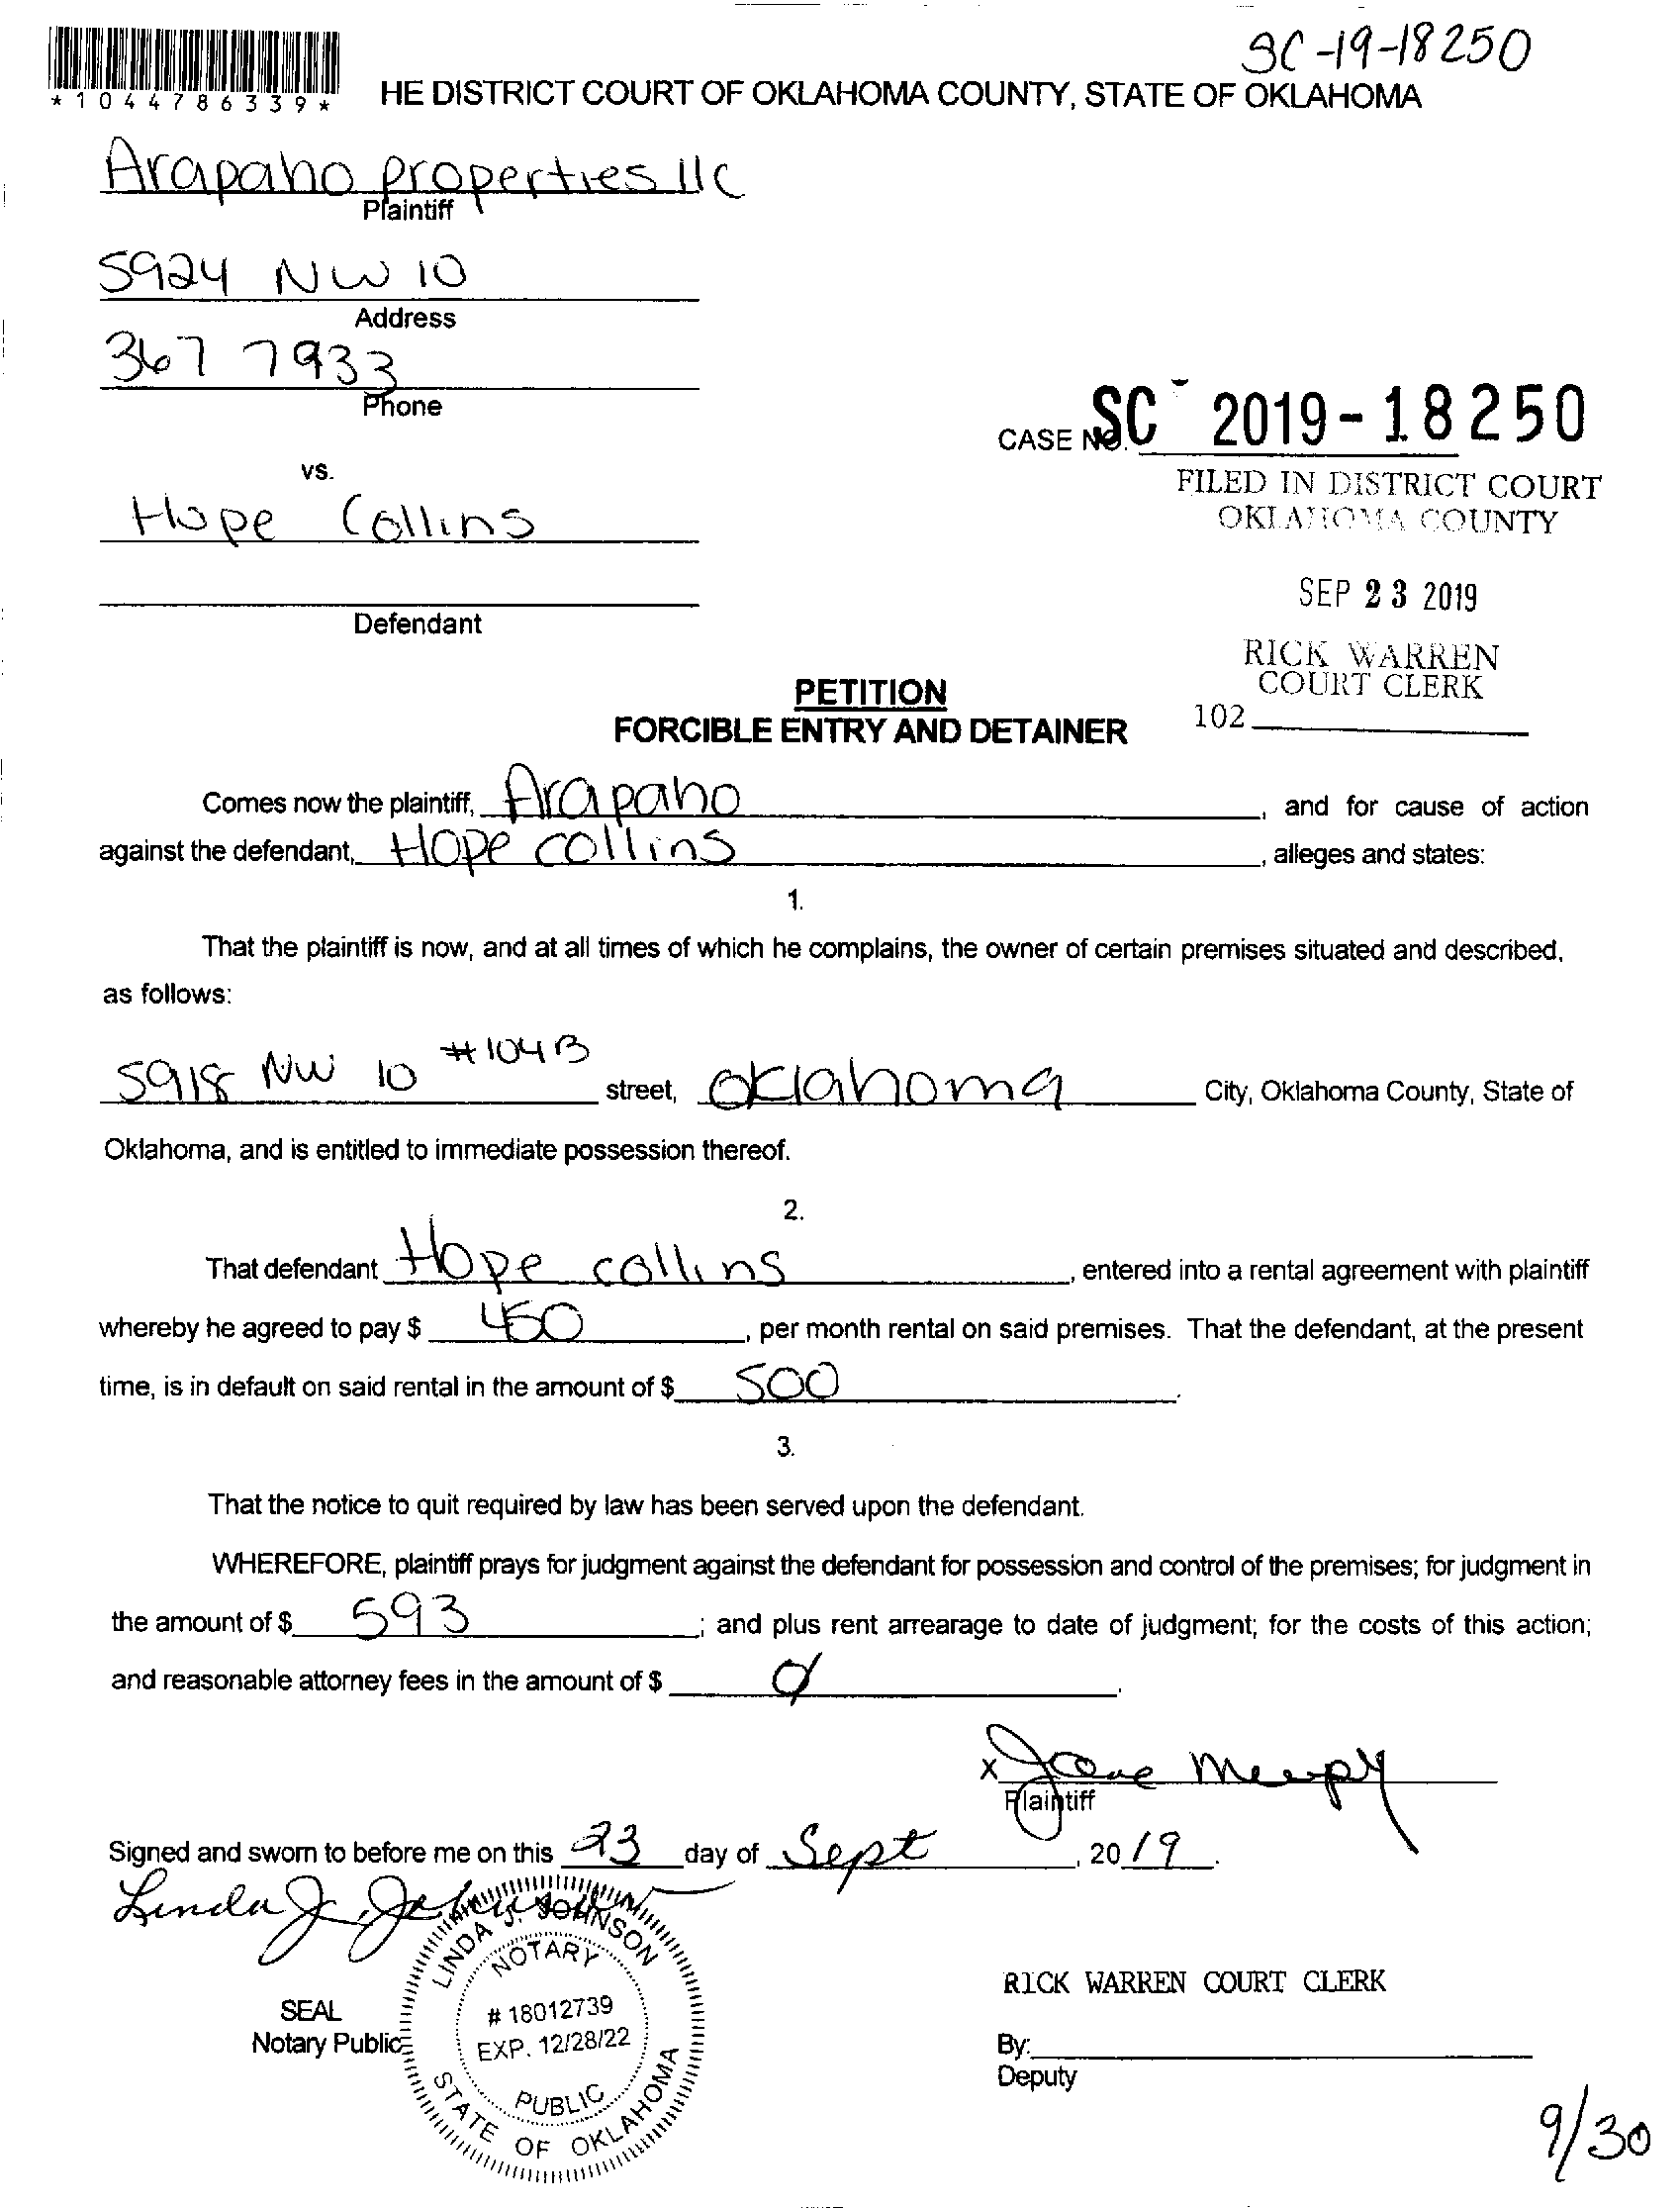 SC-19-18250
*1044786339*
HE DISTRICT COURT OF OKLAHOMA COUNTY, STATE OF OKLAHOMA
Arapaho properties llc
Plaintiff
5924 NW 10
Address
367 7933
Phone
CASE NO. SC 2019-18250
vs.
FILED IN DISTRICT COURT
OKLAHOMA COUNTY
Hope Collins
SEP 23 2019
Defendant
RICK WARREN
COURT CLERK
102
PETITION
FORCIBLE ENTRY AND DETAINER
Comes now the plaintiff, Arapaho, and for cause of action
against the defendant, Hope collins, alleges and states:
1.
That the plaintiff is now, and at all times of which he complains, the owner of certain premises situated and described,
as follows:
5918 NW 10 #104B street, Oklahoma City, Oklahoma County, State of
Oklahoma, and is entitled to immediate possession thereof.
2.
That defendant Hope collins, entered into a rental agreement with plaintiff
whereby he agreed to pay $ 450, per month rental on said premises. That the defendant, at the present
time, is in default on said rental in the amount of $ 500.
3.
That the notice to quit required by law has been served upon the defendant.
WHEREFORE, plaintiff prays for judgment against the defendant for possession and control of the premises; for judgment in
the amount of $ 593; and plus rent arrearage to date of judgment; for the costs of this action;
and reasonable attorney fees in the amount of $ 0.
X
Plaintiff
Signed and sworn to before me on this 23 day of Sept, 2019.
Linda J. Johnson
LINDA J. JOHNSON
NOTARY
# 18012739
EXP. 12/28/22
PUBLIC
STATE OF OKLAHOMA
SEAL
Notary Public
RICK WARREN COURT CLERK
By:
Deputy
9/30